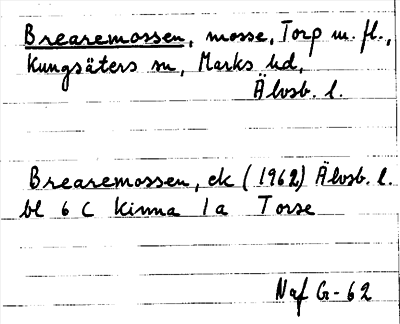 Brearemossen, mosse, Torp m. fl.,
Kungsäters sn, Marks hd,
Älvsb. l.
Brearemossen, ek (1962) Älvsb. l.
bl 6 C Kinna 1a Torse
Naf G-62